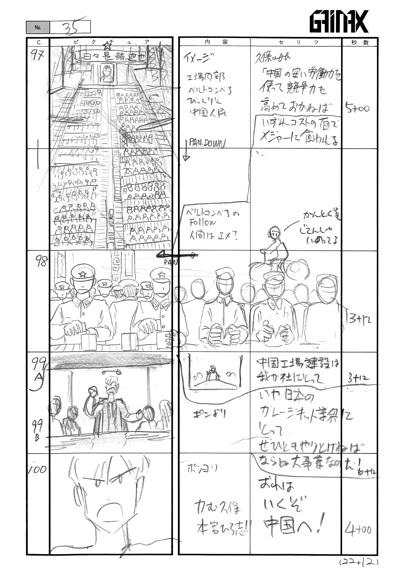 GAINAX
No. 35
C
ピクチュア
内容
セリフ
秒数
97
イメージ
工場内部
ベルトコンベる
びっしりと
中国人民
PAN DOWN
久保
「中国の安い労働力を
使って競争力を
高めておかねば
いずれコストの面で
メジャーに食われる
5+00
ベルトコンベアの
Follow
人間は止メ?
かんとく官
じてんしゃ
にのってる
98
PAN
3+12
99
A
中国工場建設は
我が社にとって
3+12
99
B
いや 日本の
ガレージキット業界に
とって
ぜひともやりとげねば
ならぬ大事業なのだ!
6+12
100
おれは
いくぞ
中国へ!
力む久保
本宮ひろ志!!
4+00
(22+12)